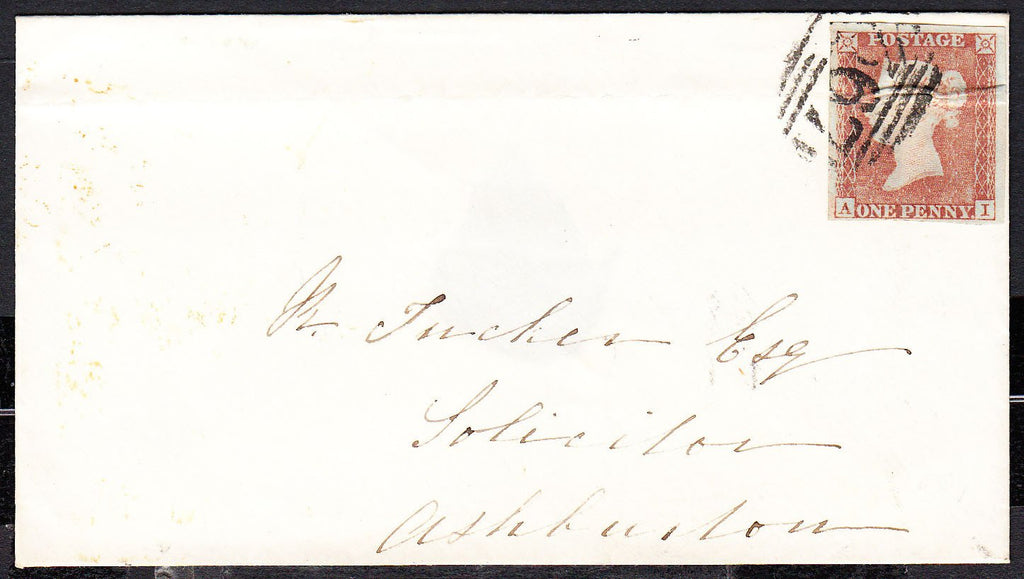 POSTAGE
A ONE PENNY. I
Tucker Esq
Solicitor
Ashburton